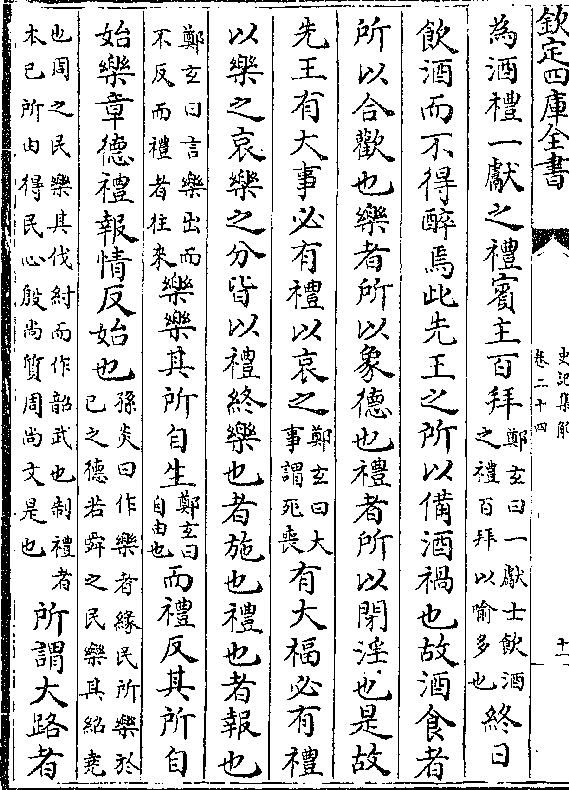 欽定四庫全書
史記集解
卷二十四
十一
為酒禮一獻之禮賓主百拜鄭玄曰一獻士飲酒之禮百拜以喻多也終日
飲酒而不得醉焉此先王之所以備酒禍也故酒食者
所以合歡也樂者所以象德也禮者所以閉淫也是故
先王有大事必有禮以哀之鄭玄曰大事謂死喪有大福必有禮
以樂之哀樂之分皆以禮終樂也者施也禮也者報也
鄭玄曰言樂出而不反而禮者往來樂樂其所自生鄭玄曰自由也而禮反其所自
始樂章德禮報情反始也孫炎曰作樂者緣民所樂於己之德若舜之民樂其紹堯
也周之民樂其伐紂而作韶武也制禮者本己所由得民心殷尚質周尚文是也所謂大路者